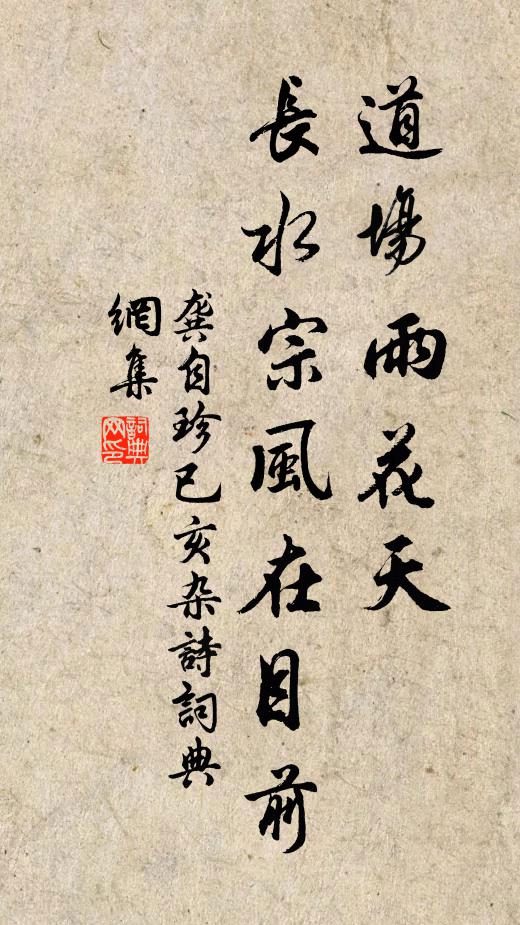 道場雨花天
長水宗風在目前
龔自珍己亥杂詩詞典
網集
詞典
网印